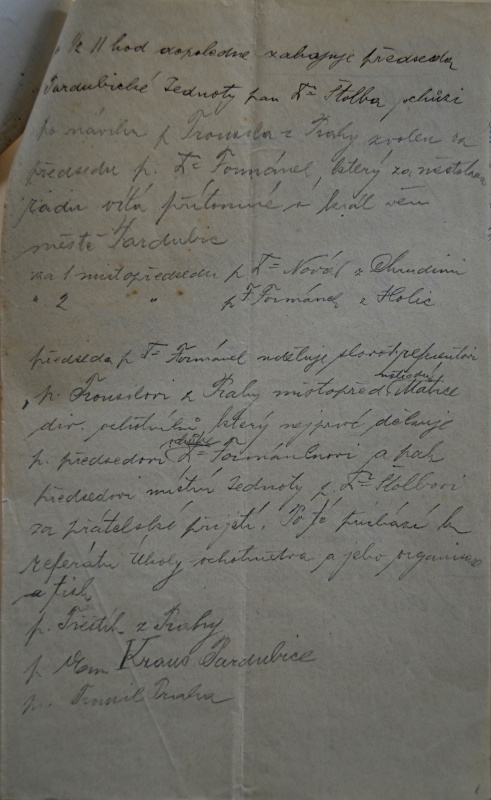 1/2 11 hod dopoledne zahajuje předseda
Pardubické Jednoty pan Dr Štolba schůzi
po návrhu p Trousila z Prahy zvolen za
předsedu p. Dr Formánek, který za městskou
radu vítá přítomné v král věn
městě Pardubic
za 1 místopředsedu p Dr Novák z Chrudimi
" 2 " p F. Formánek z Holic
předseda p Dr Formánek uděluje slovo referentovi
p. Trousilovi z Prahy místopřed. Ústřední Matice
div. ochotníků, který nejprvé děkuje
p. předsedovi Dr Formánkovi a pak
předsedovi místní Jednoty p. Dr Štolbovi
za přátelské přijetí. Po té přichází k
referátu Úkoly ochotnictva a jeho organisace
a tisk
p. Treštík z Prahy
p. Em Kraus Pardubice
p. Praha